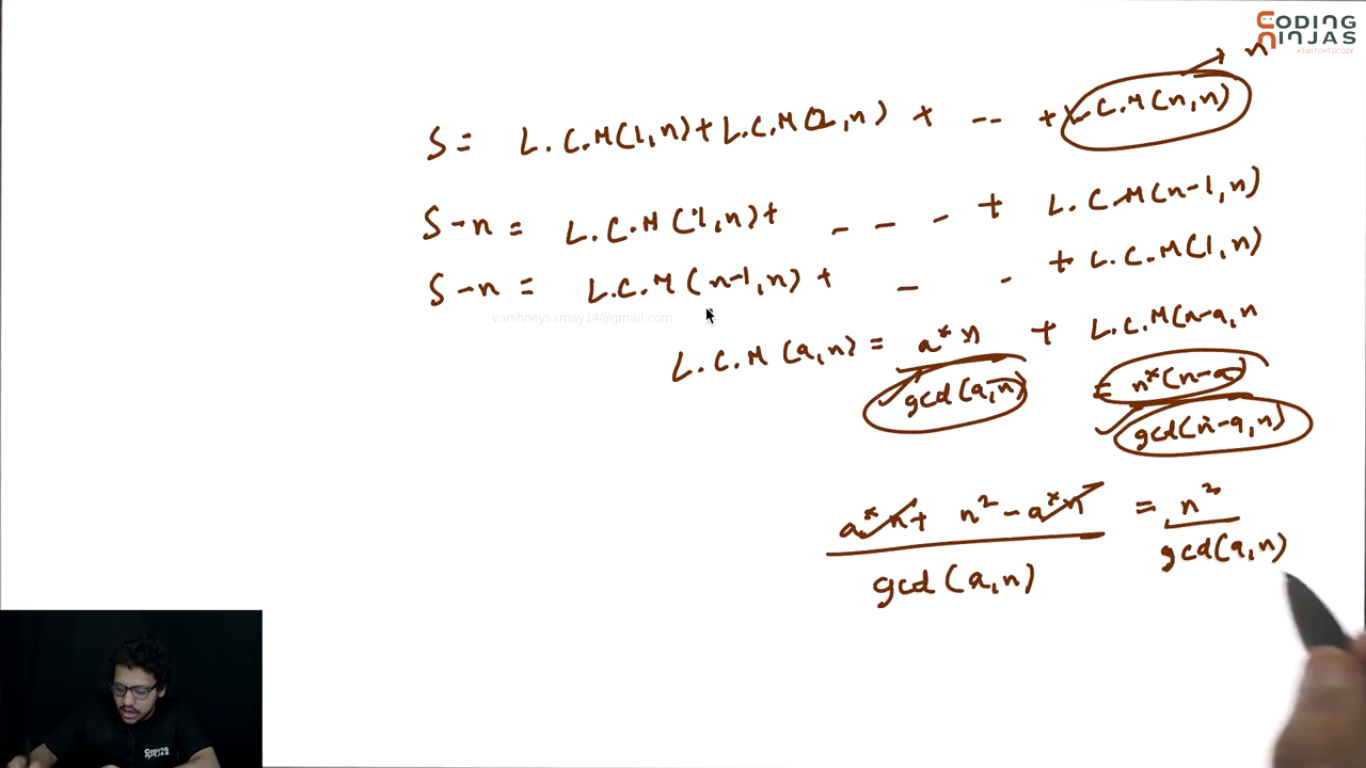 CODING
NINJAS
#SWITCHTOCODE
n
S = L.C.M(1,n)+L.C.M(2,n) + -- + L.C.M(n,n)
S-n = L.C.M(1,n)+ - - - + L.C.M(n-1,n)
S-n = L.C.M(n-1,n) + - - + L.C.M(1,n)
varshneysamay14@gmail.com
L.C.M(a,n) = a*n + L.C.M(n-a,n
gcd(a,n) = n*(n-a)
gcd(n-a,n)
a*n+ n²-a*n = n²
gcd(a,n) gcd(a,n)
CODING
NINJAS